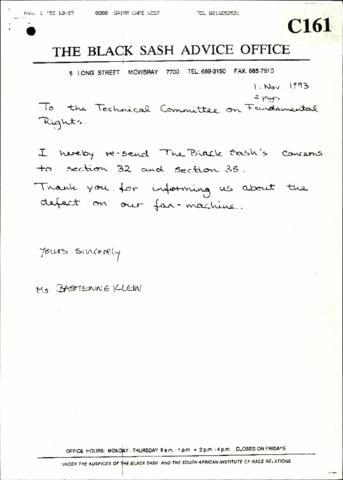 Nov. 1 '93 10:57 0000 SAIRR CAPE WEST TEL 021685250
C161
THE BLACK SASH ADVICE OFFICE
5 LONG STREET MOWBRAY 7700 TEL 689-3150 FAX: 685-7510
1. Nov. 1993
2 pages
To the Technical Committee on Fundamental
Rights.
I hereby re-send The Black Sash's concerns
to section 32 and section 35.
Thank you for informing us about the
defect on our fax-machine..
Yours sincerely
Ms BASTIENNE KLEIN
OFFICE HOURS: MONDAY - THURSDAY 9 a.m. - 1 p.m. • 2 p.m. - 4 p.m. CLOSED ON FRIDAYS
UNDER THE AUSPICES OF THE BLACK SASH AND THE SOUTH AFRICAN INSTITUTE OF RACE RELATIONS